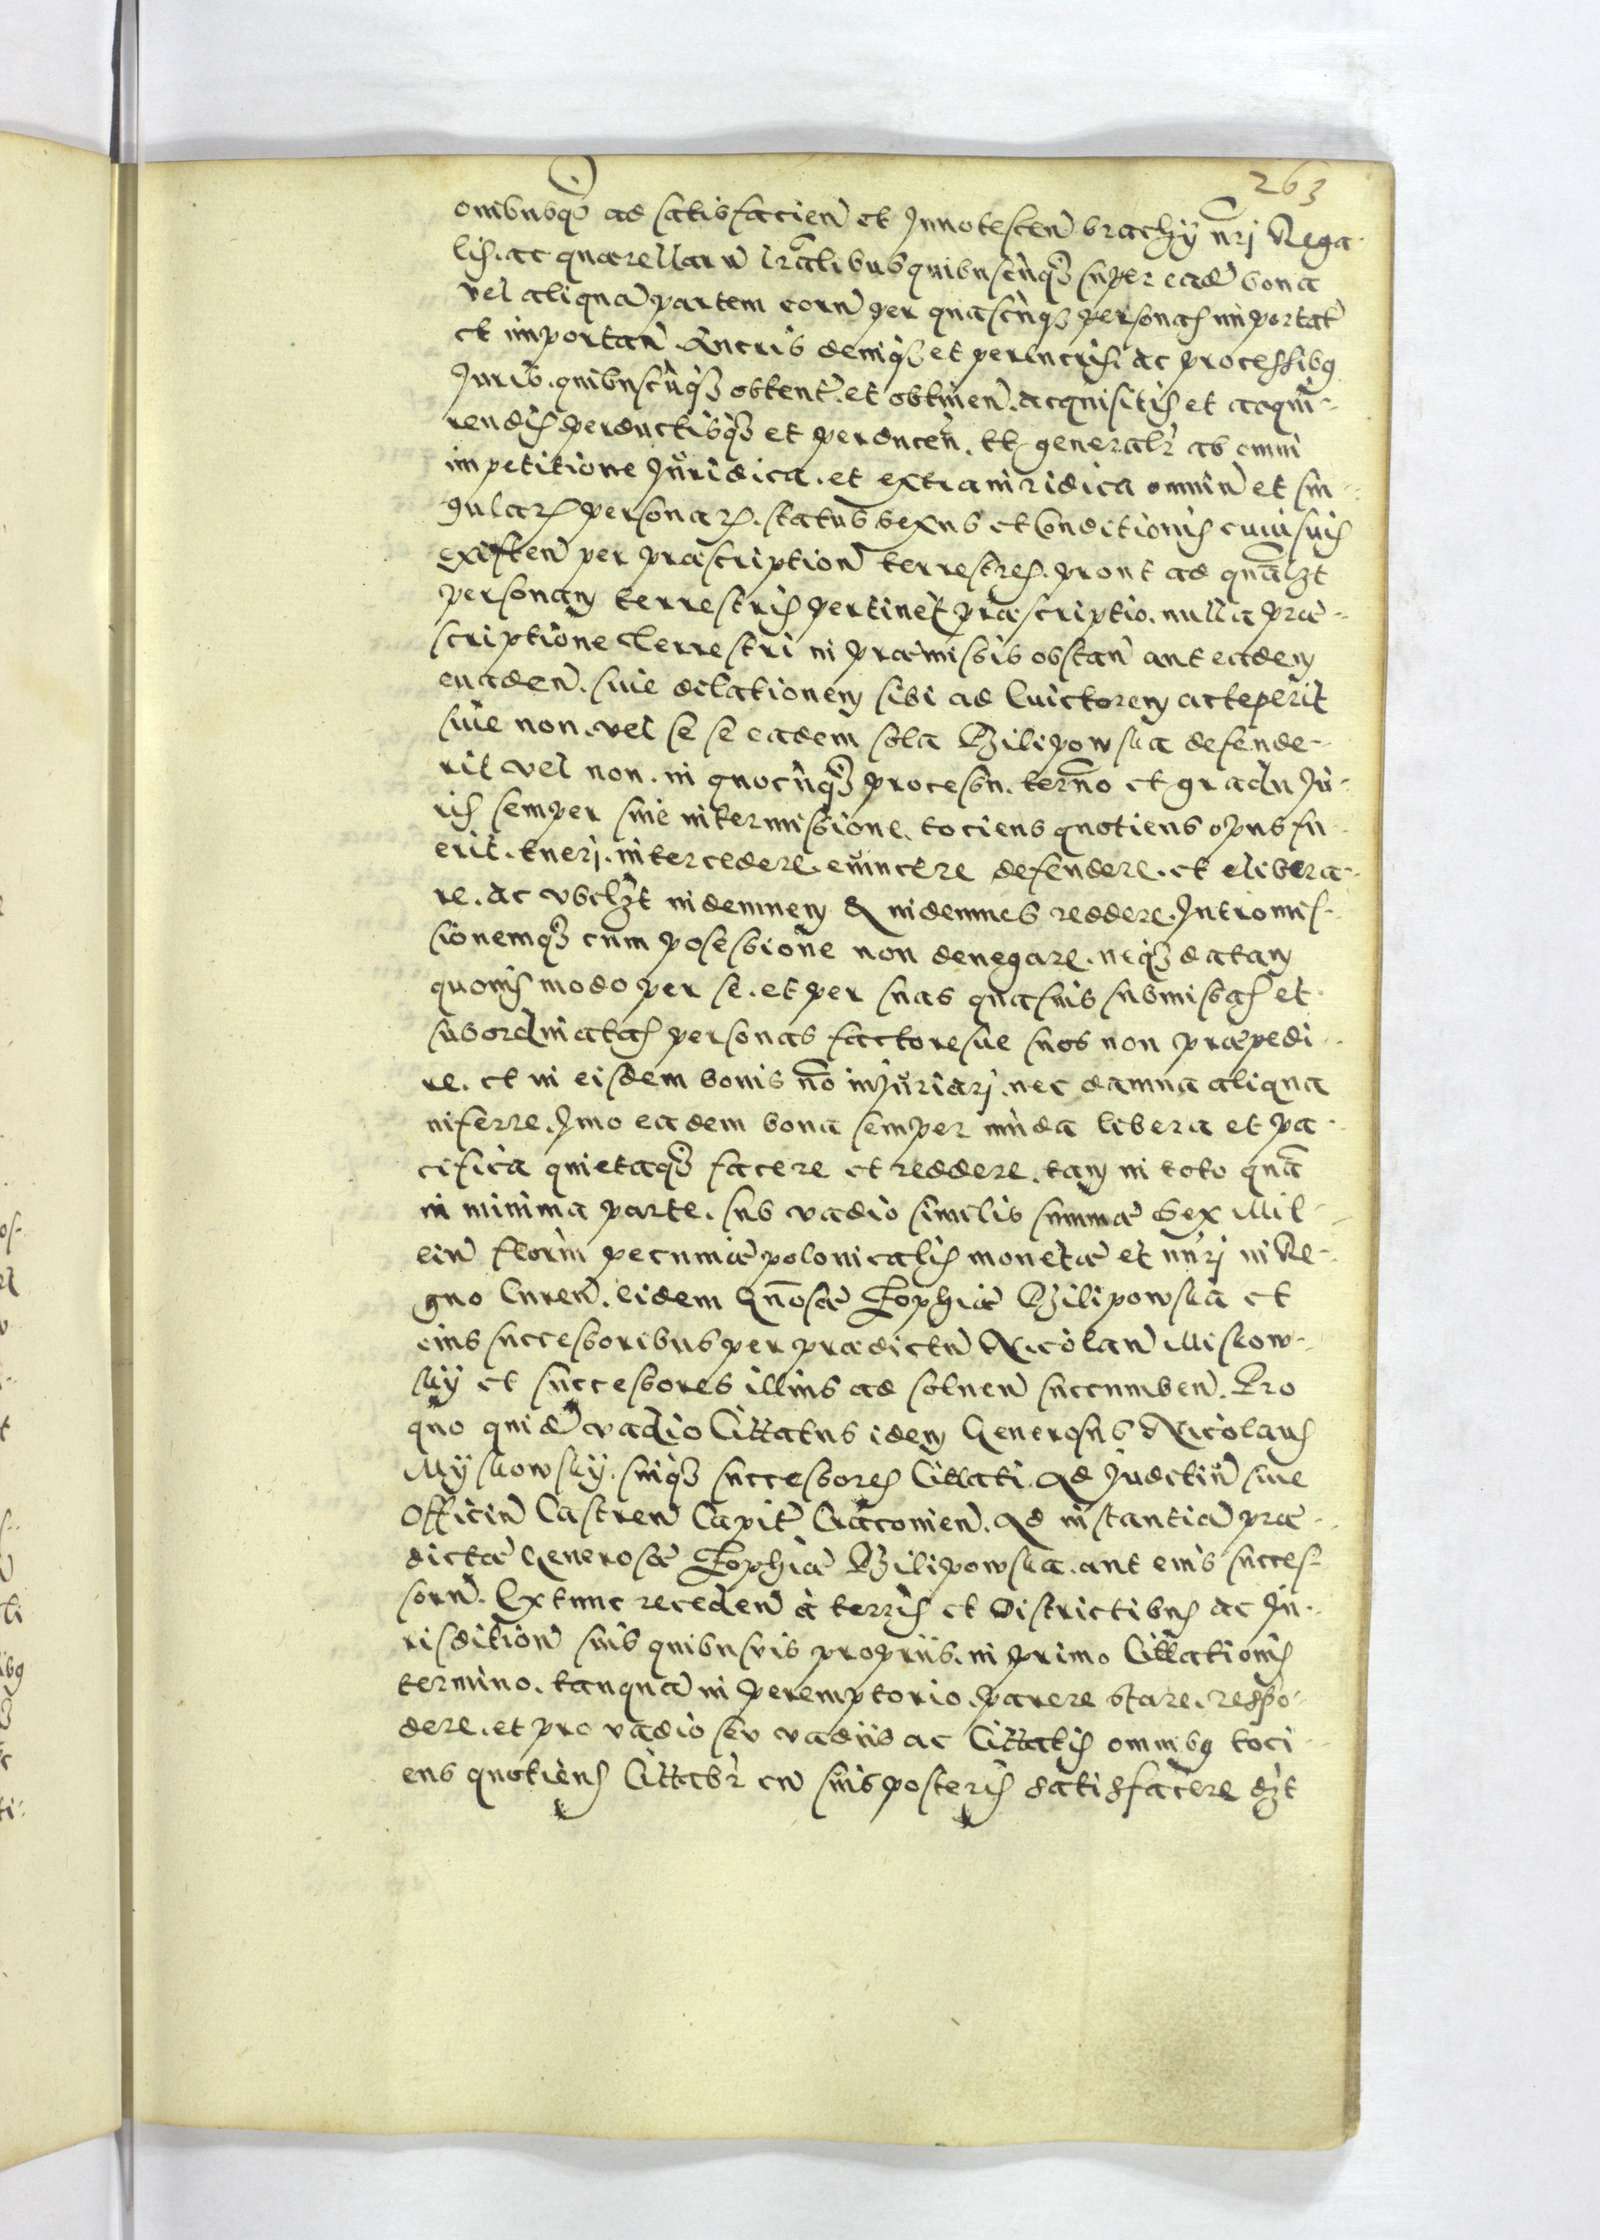 263
omibusqȝ ad satisfacien̄ et Innotescen̄ brachÿ nr̄j Rega-
lis. ac quærellarū lr̄alibus quibuscūqȝ super eadē bona
vel aliquā partem eorū per quascūqȝ personas importat̄
et importan̄. Lucris deniqȝ et perlucris. ac processibꝯ
Iurib. quibuscūqȝ obtent̄. et obtinen̄. acquisitis et acqui-
rendis perductisqȝ et perducen̄. Et generalr̄ ab omni
impetitione Iuridica. et extraiuridica omniū et sin-
gularꝝ personarꝝ. status sexus et Conditionis cuiusuis
existen̄ per præscription̄ terrestres. prout ad quālꝫt
personam terrestris pertinet præscriptio. nulla præ-
scriptione Terrestri in præmissis obstan̄ aut eadem
euaden̄. siue dilationem sibi ad Euictorem acceperit
siue non. vel se se eadem sola Philipowska defende-
rit vel non. in quocūqȝ processu. termo et gradu Iu-
ris semper sine intermissione. tociens quotiens opus fu-
erit. tuerj. intercedere. euincere defendere. et elibera-
re. ac vbelꝫt indemnem & indemnes reddere. Intromis-
sionemqȝ cum possessione non denegare. neqȝ datam
quouis modo per se. et per suas quasuis submissas et
subordinatas personas factoresue suos non præpedi-
re. et in eisdem bonis nō iniuriarj. nec damna aliqua
inferre. Imo eadem bona semper mūda libera et pa-
cifica quietaqȝ facere et reddere. tam in toto quā
in minima parte. sub vadio similis summæ Sex Mil-
lin̄ florin̄ pecuniæ polonicalis monetæ et nūrj in Re-
gno Curen̄. Eidem Gn̄osæ Zophiæ Philipowska et
eius successoribus per prædictū Nicolaū Miskow-
skÿ et successores illius ad soluen̄ succumben̄. Pro
quo quidē vadio Cittatus idem Generosus Nicolaus
Mÿskowskÿ. suiqȝ successores Cittati. Ad Iudctiū siue
Officiū Castren̄ Capit̄ Cracouien̄. Ad instantiā præ-
dictæ Generosæ Zophiæ Philipowska. aut eius succes-
sorū. Extunc receden̄ à terris et Districtibus ac Iu-
risdition̄ suis quibusuis propriis. in primo Cittationis
termino. tanquā in peremptorio. parere stare. respō-
dere. et pro vadio seu vadiis ac Cittatis omnibꝯ toci-
ens quotiens Cittabr̄ cū suis posteris satisfacere dꝫt